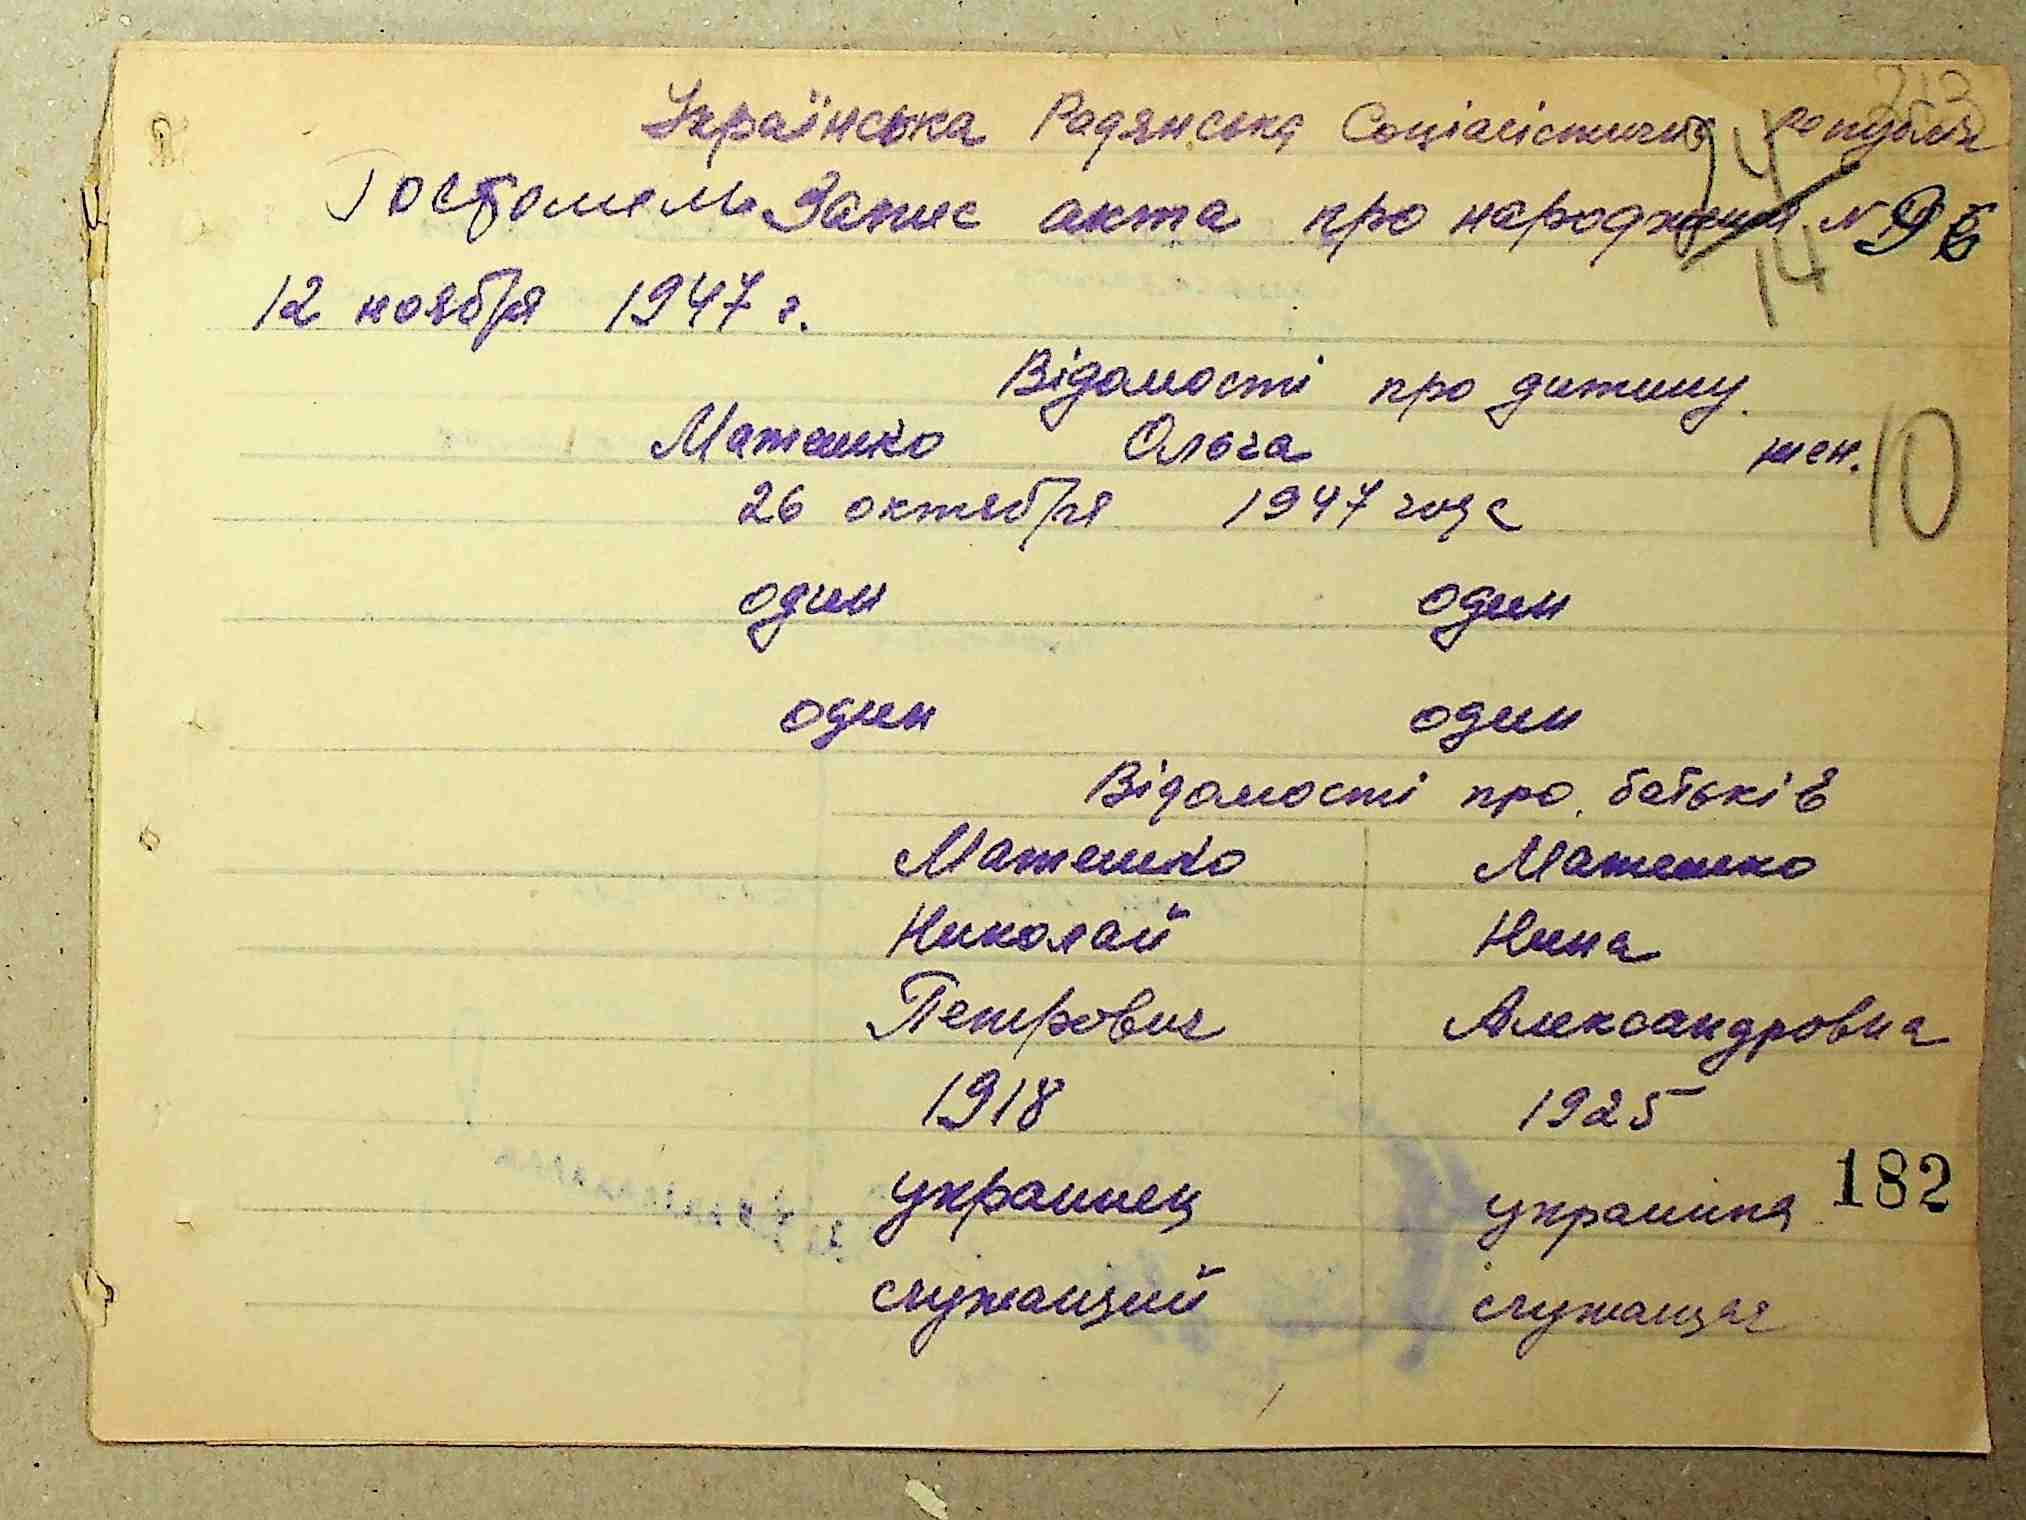 213
Українська Радянська Соціалістична Республік
Гостомель Запис акта про народження N 96
94
14
12 ноября 1947 г.
Відомості про дитину.
Матешко Ольга жен.
10
26 октября 1947 года
один один
один один
Відомості про батьків
Матешко Матешко
Николай Нина
Петрович Александровна
1918 1925
182
украинец украинка
служащий служащая